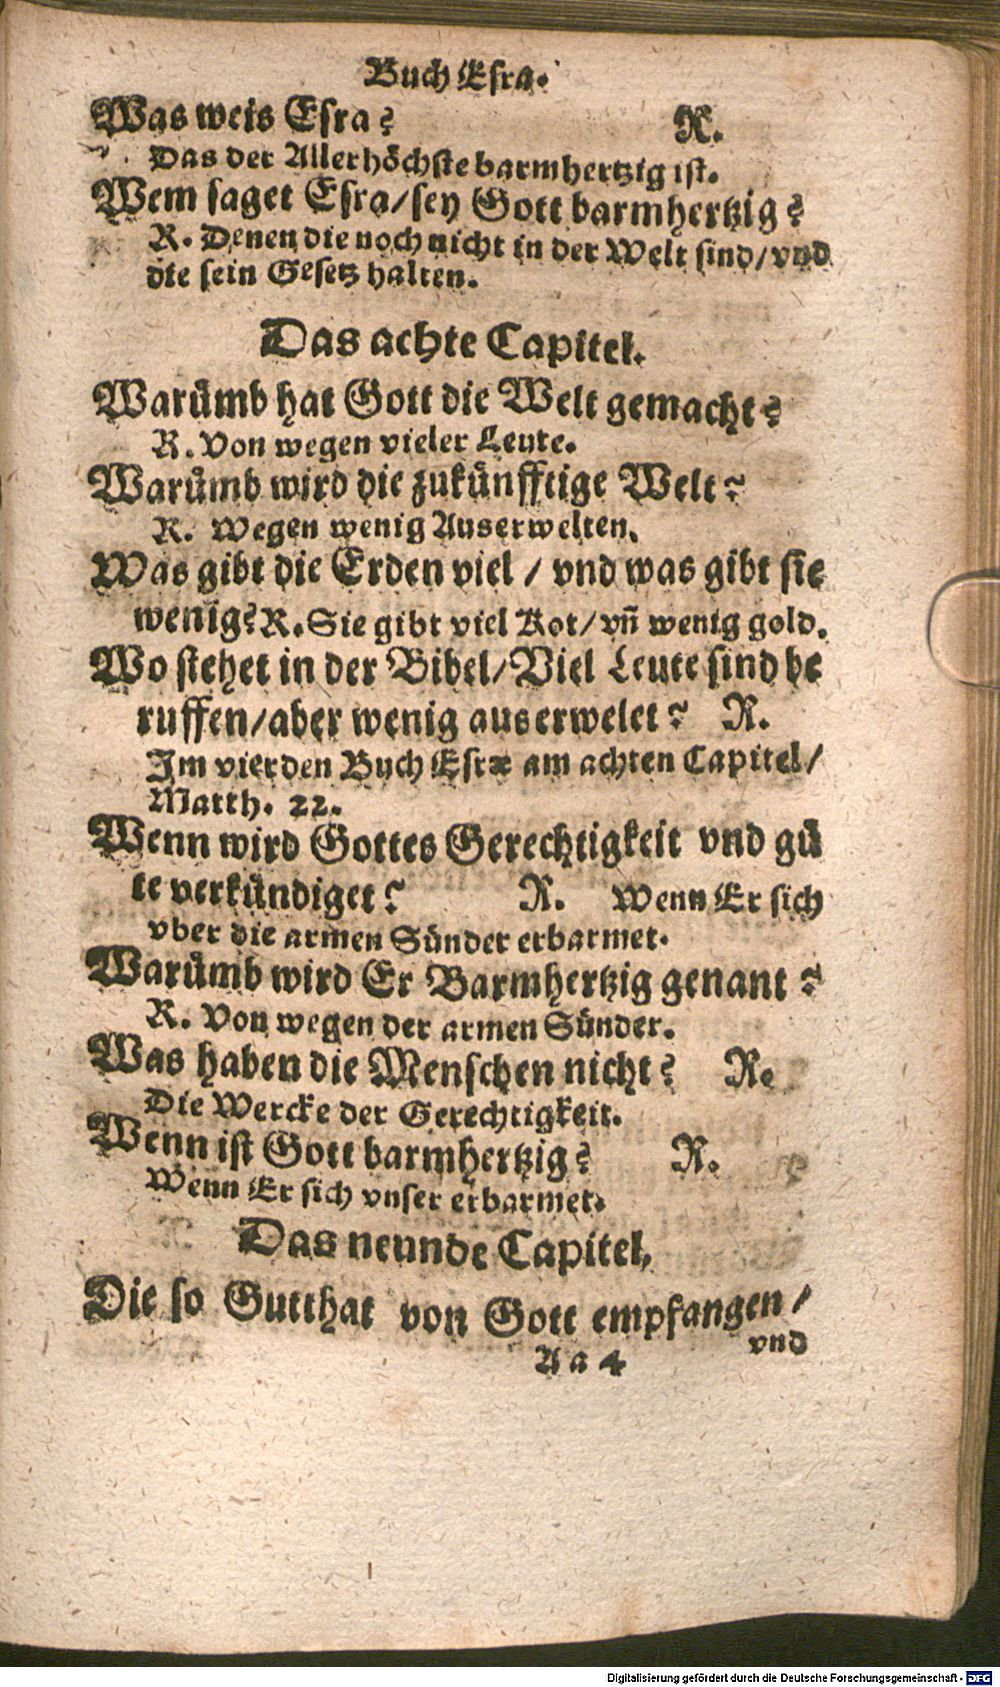 Buch Esra.
Was weis Esra? R.
Das der Allerhöchste barmhertzig ist.
Wem saget Esra/sey Gott barmhertzig?
R. Denen die noch nicht in der Welt sind/vnd
die sein Gesetz halten.
Das achte Capitel.
Warůmb hat Gott die Welt gemacht?
R. Von wegen vieler Leute.
Warůmb wird die zukünfftige Welt?
R. Wegen wenig Auserwelten.
Was gibt die Erden viel / vnd was gibt sie
wenig? R. Sie gibt viel Kot/vn̄ wenig gold.
Wo stehet in der Bibel/Viel Leute sind be
ruffen/aber wenig auserwelet? R.
Im vierden Buch Esræ am achten Capitel/
Matth. 22.
Wenn wird Gottes Gerechtigkeit vnd gü
te verkündiget? R. Wenn Er sich
vber die armen Sünder erbarmet.
Warůmb wird Er Barmhertzig genant?
R. Von wegen der armen Sünder.
Was haben die Menschen nicht? R.
Die Wercke der Gerechtigkeit.
Wenn ist Gott barmhertzig? R.
Wenn Er sich vnser erbarmet.
Das neunde Capitel.
Die so Gutthat von Gott empfangen/
vnd
A a 4
Digitalisierung gefördert durch die Deutsche Forschungsgemeinschaft - DFG